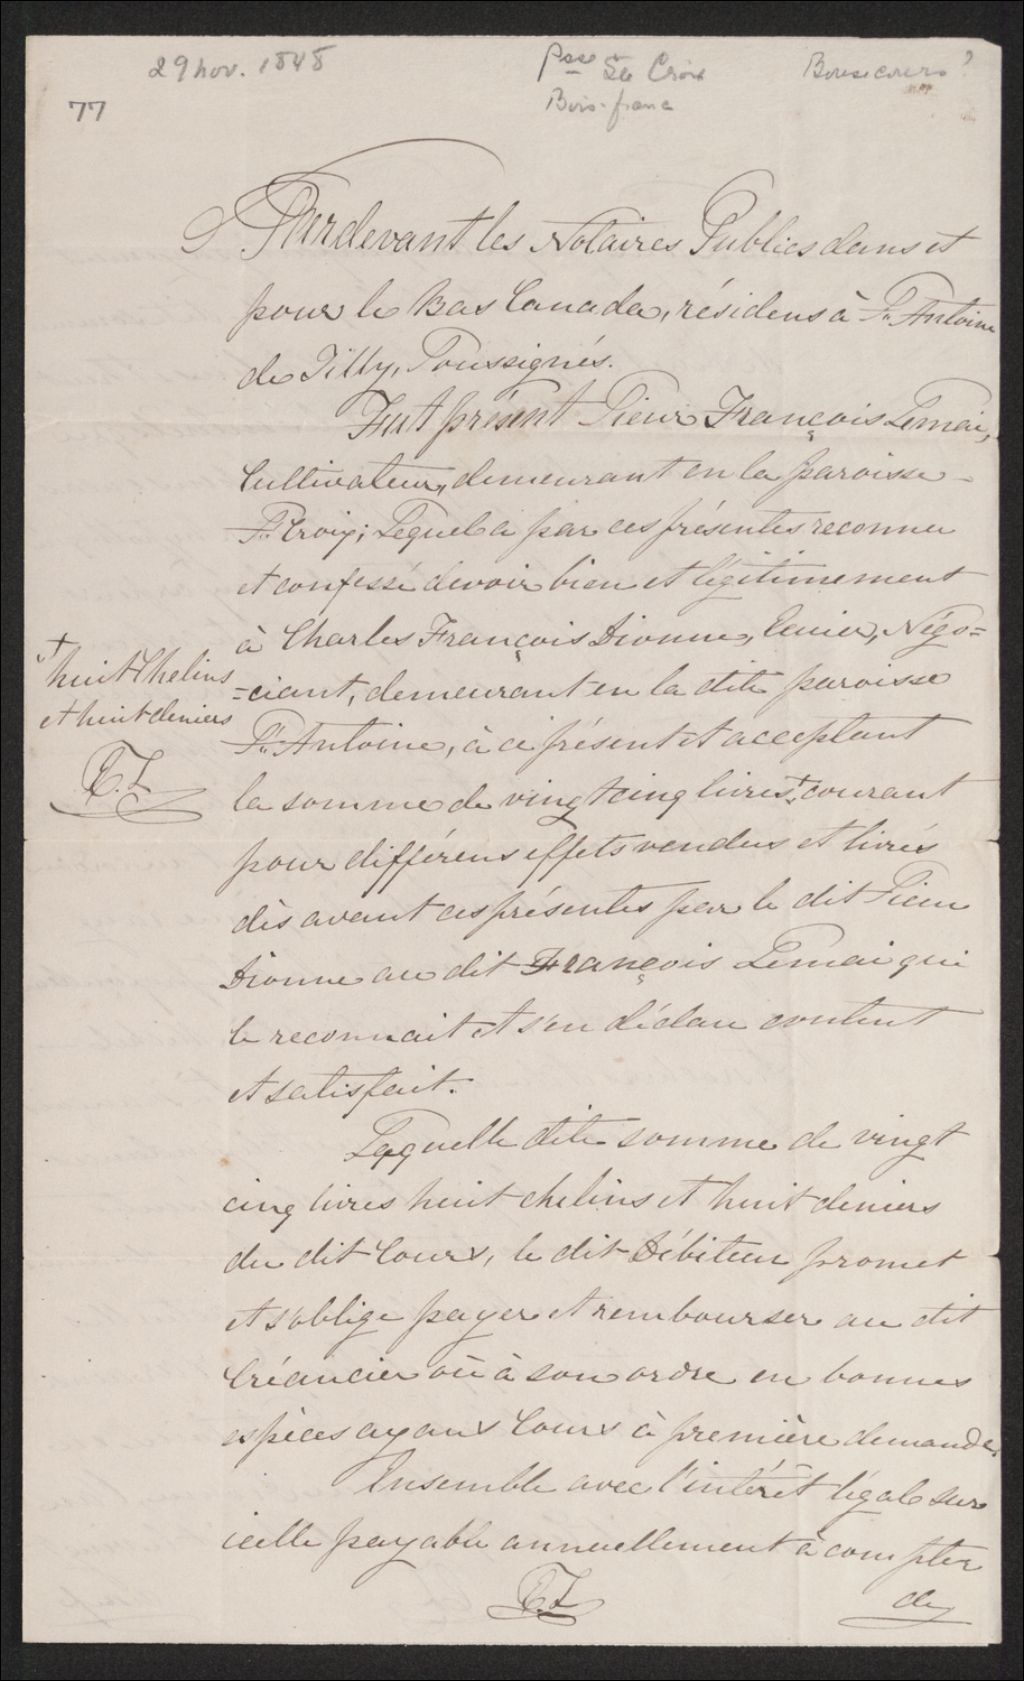 29 nov. 1848
Psse Ste Croix
Bonsecours?
Bois-franc
77
Pardevant les Notaires Publics dans et
pour le Bas Canada, résidens à St. Antoine
de Tilly, Soussignés.
Fut présent Sieur François Lemai,
Cultivateur, demeurant en la paroisse
Ste. Croix; Lequel a par ces présentes reconnu
et confessé devoir bien et légitimement
à Charles François Dionne, Ecuier, Négo=
=ciant, demeurant en la dite paroisse
St. Antoine, à ce présent et acceptant
la somme de vingt cinq livres + courant
+ huit Chelins
et huit deniers
pour différens effets vendus et livrés
dès avant ces présentes par le dit Sieur
Dionne au dit François Lemai qui
le reconnait et s'en déclare content
et satisfait.
Laquelle dite somme de vingt
cinq livres huit chelins et huit deniers
du dit Cours, le dit Débiteur promet
et s'oblige payer et rembourser au dit
Créancier où à son ordre en bonnes
espèces ayans Cours à première demande.
Ensemble avec l'intérêt légale sur
icelle payable annuellement à compter
de